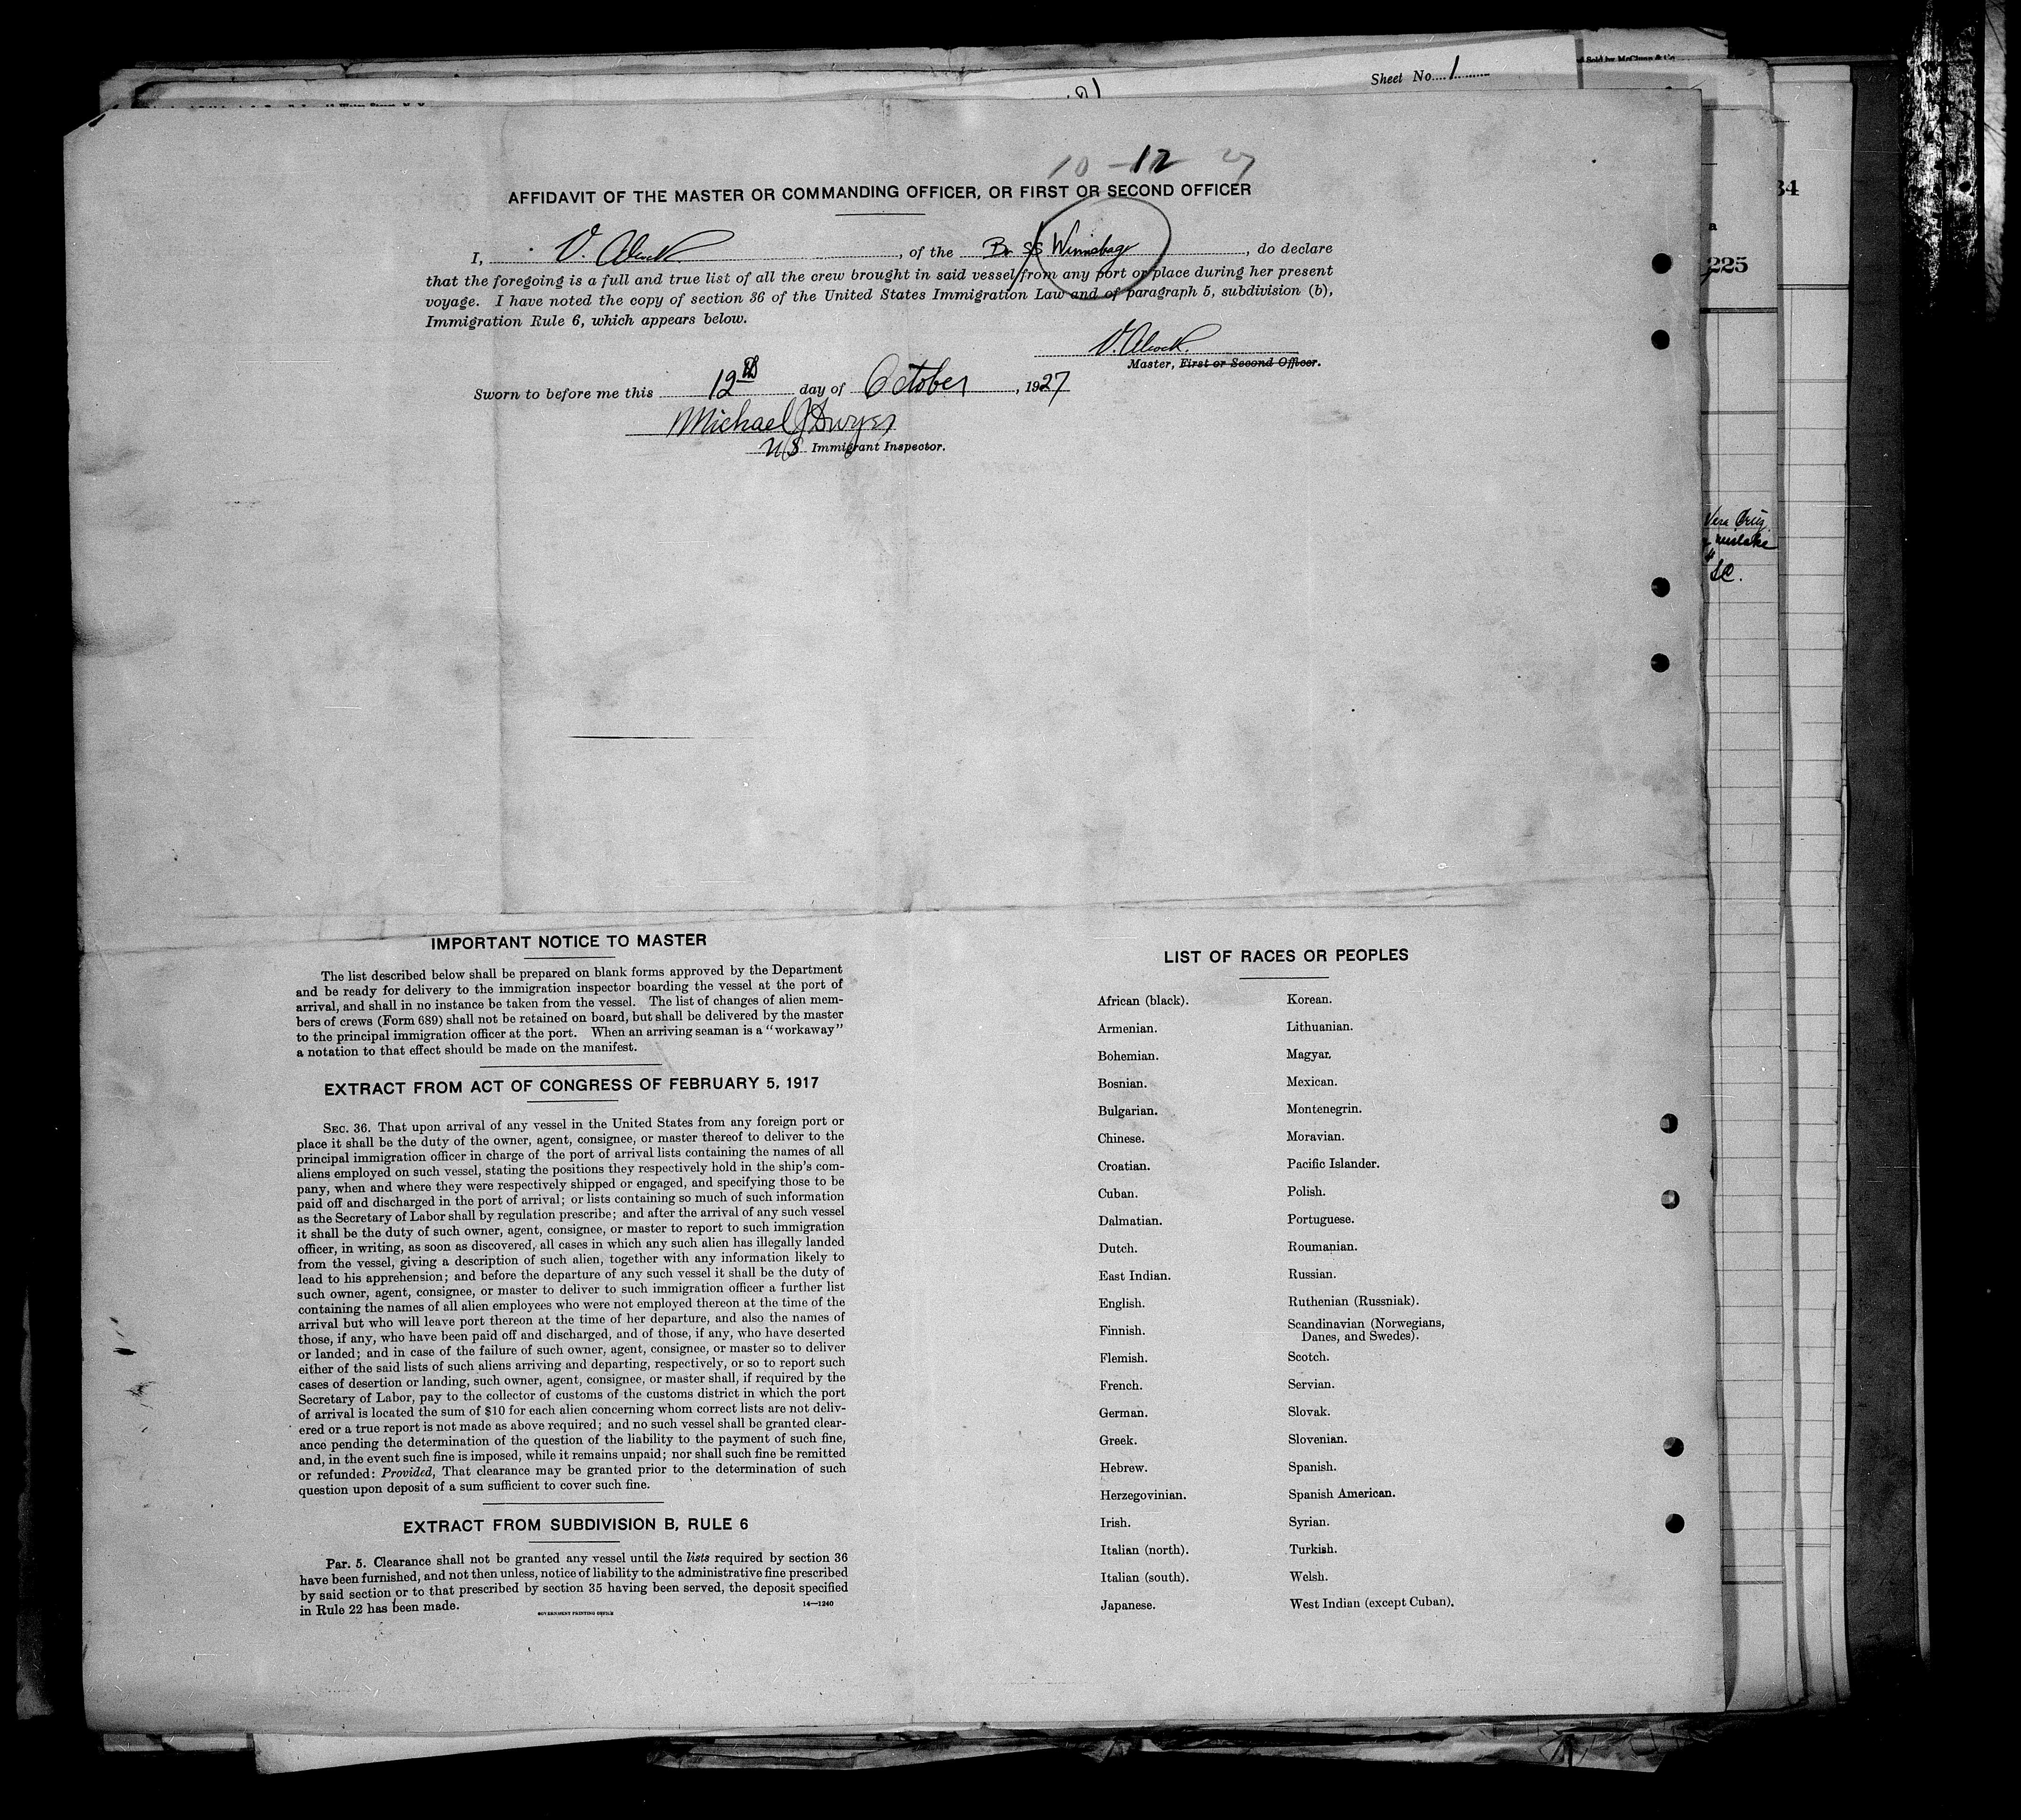 Sheet No. 1
10-12 27
AFFIDAVIT OF THE MASTER OR COMMANDING OFFICER, OR FIRST OR SECOND OFFICER
I, V. Alcock, of the Br SS Winnebago, do declare
that the foregoing is a full and true list of all the crew brought in said vessel from any port or place during her present
voyage. I have noted the copy of section 36 of the United States Immigration Law and of paragraph 5, subdivision (b),
Immigration Rule 6, which appears below.
V. Alcock.
Master, First or Second Officer.
Sworn to before me this 12th day of October, 1927
Michael J Dwyer
U S Immigrant Inspector.
34
225
Vera Cruz
mistake
IMPORTANT NOTICE TO MASTER
The list described below shall be prepared on blank forms approved by the Department
and be ready for delivery to the immigration inspector boarding the vessel at the port of
arrival, and shall in no instance be taken from the vessel. The list of changes of alien mem-
bers of crews (Form 689) shall not be retained on board, but shall be delivered by the master
to the principal immigration officer at the port. When an arriving seaman is a "workaway"
a notation to that effect should be made on the manifest.
EXTRACT FROM ACT OF CONGRESS OF FEBRUARY 5, 1917
SEC. 36. That upon arrival of any vessel in the United States from any foreign port or
place it shall be the duty of the owner, agent, consignee, or master thereof to deliver to the
principal immigration officer in charge of the port of arrival lists containing the names of all
aliens employed on such vessel, stating the positions they respectively hold in the ship's com-
pany, when and where they were respectively shipped or engaged, and specifying those to be
paid off and discharged in the port of arrival; or lists containing so much of such information
as the Secretary of Labor shall by regulation prescribe; and after the arrival of any such vessel
it shall be the duty of such owner, agent, consignee, or master to report to such immigration
officer, in writing, as soon as discovered, all cases in which any such alien has illegally landed
from the vessel, giving a description of such alien, together with any information likely to
lead to his apprehension; and before the departure of any such vessel it shall be the duty of
such owner, agent, consignee, or master to deliver to such immigration officer a further list
containing the names of all alien employees who were not employed thereon at the time of the
arrival but who will leave port thereon at the time of her departure, and also the names of
those, if any, who have been paid off and discharged, and of those, if any, who have deserted
or landed; and in case of the failure of such owner, agent, consignee, or master so to deliver
either of the said lists of such aliens arriving and departing, respectively, or so to report such
cases of desertion or landing, such owner, agent, consignee, or master shall, if required by the
Secretary of Labor, pay to the collector of customs of the customs district in which the port
of arrival is located the sum of $10 for each alien concerning whom correct lists are not deliv-
ered or a true report is not made as above required; and no such vessel shall be granted clear-
ance pending the determination of the question of the liability to the payment of such fine,
and, in the event such fine is imposed, while it remains unpaid; nor shall such fine be remitted
or refunded: Provided, That clearance may be granted prior to the determination of such
question upon deposit of a sum sufficient to cover such fine.
EXTRACT FROM SUBDIVISION B, RULE 6
Par. 5. Clearance shall not be granted any vessel until the lists required by section 36
have been furnished, and not then unless, notice of liability to the administrative fine prescribed
by said section or to that prescribed by section 35 having been served, the deposit specified
in Rule 22 has been made.
14—1240
GOVERNMENT PRINTING OFFICE
LIST OF RACES OR PEOPLES
African (black).
Armenian.
Bohemian.
Bosnian.
Bulgarian.
Chinese.
Croatian.
Cuban.
Dalmatian.
Dutch.
East Indian.
English.
Finnish.
Flemish.
French.
German.
Greek.
Hebrew.
Herzegovinian.
Irish.
Italian (north).
Italian (south).
Japanese.
Korean.
Lithuanian.
Magyar.
Mexican.
Montenegrin.
Moravian.
Pacific Islander.
Polish.
Portuguese.
Roumanian.
Russian.
Ruthenian (Russniak).
Scandinavian (Norwegians,
Danes, and Swedes).
Scotch.
Servian.
Slovak.
Slovenian.
Spanish.
Spanish American.
Syrian.
Turkish.
Welsh.
West Indian (except Cuban).